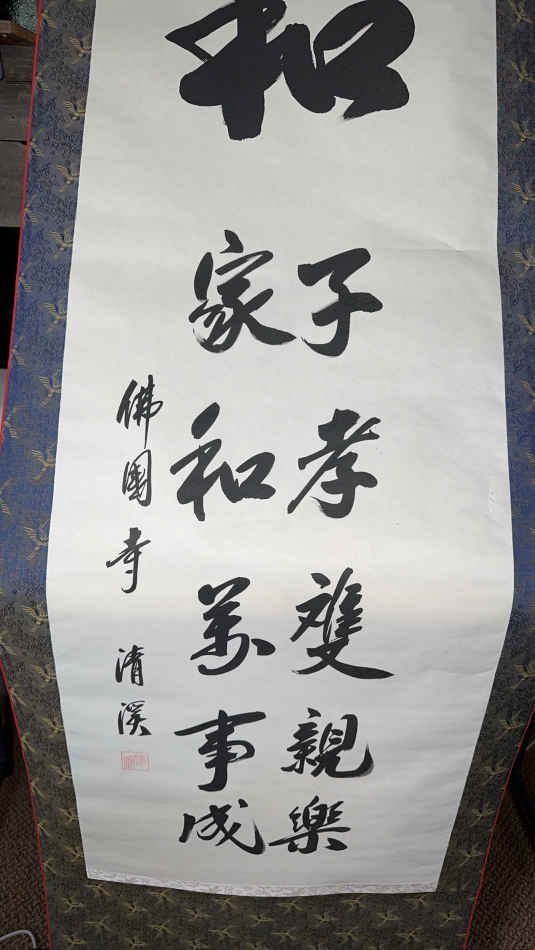 和
子孝雙親樂
家和萬事成
佛國寺 清溪